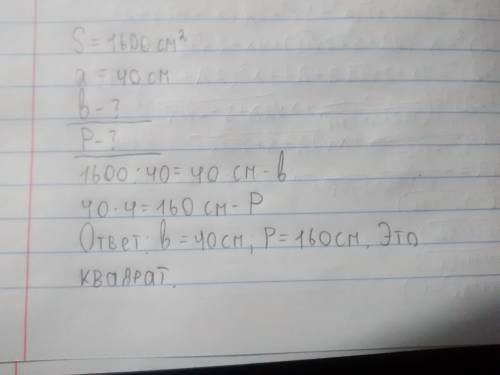 S = 1600 см²
a = 40 см
в - ?
P - ?
1600 : 40 = 40 см - в
40 · 4 = 160 см - P
Ответ: в = 40 см, P = 160 см, Это
квадрат.